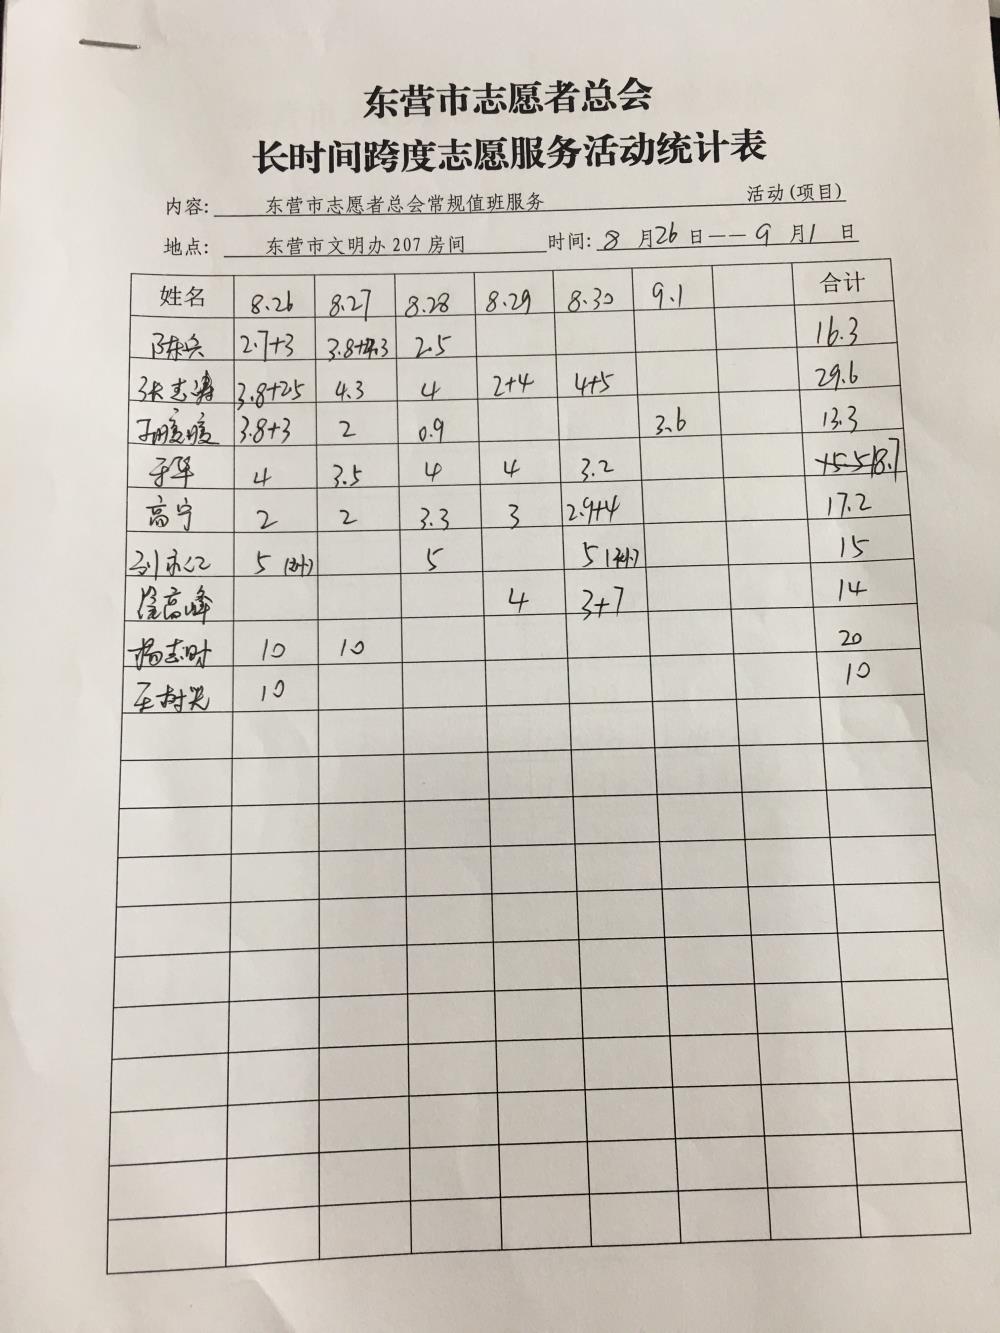 东营市志愿者总会
长时间跨度志愿服务活动统计表
内容: 东营市志愿者总会常规值班服务 活动(项目)
地点: 东营市文明办 207 房间 时间: 8 月 26 日——9 月 1 日
姓名 8.26 8.27 8.28 8.29 8.30 9.1 合计
陈兵 2.7+3 3.8+4.3 2.5 16.3
张志涛 3.8+2.5 4.3 4 2+4 4+5 29.6
暖暖 3.8+3 2 0.9 3.6 13.3
于华 4 3.5 4 4 3.2 15.5 18.7
高宁 2 2 3.3 3 2.9+4 17.2
刘永仁 5 5 5 15
高峰 4 3+7 14
杨志时 10 10 20
王树光 10 10